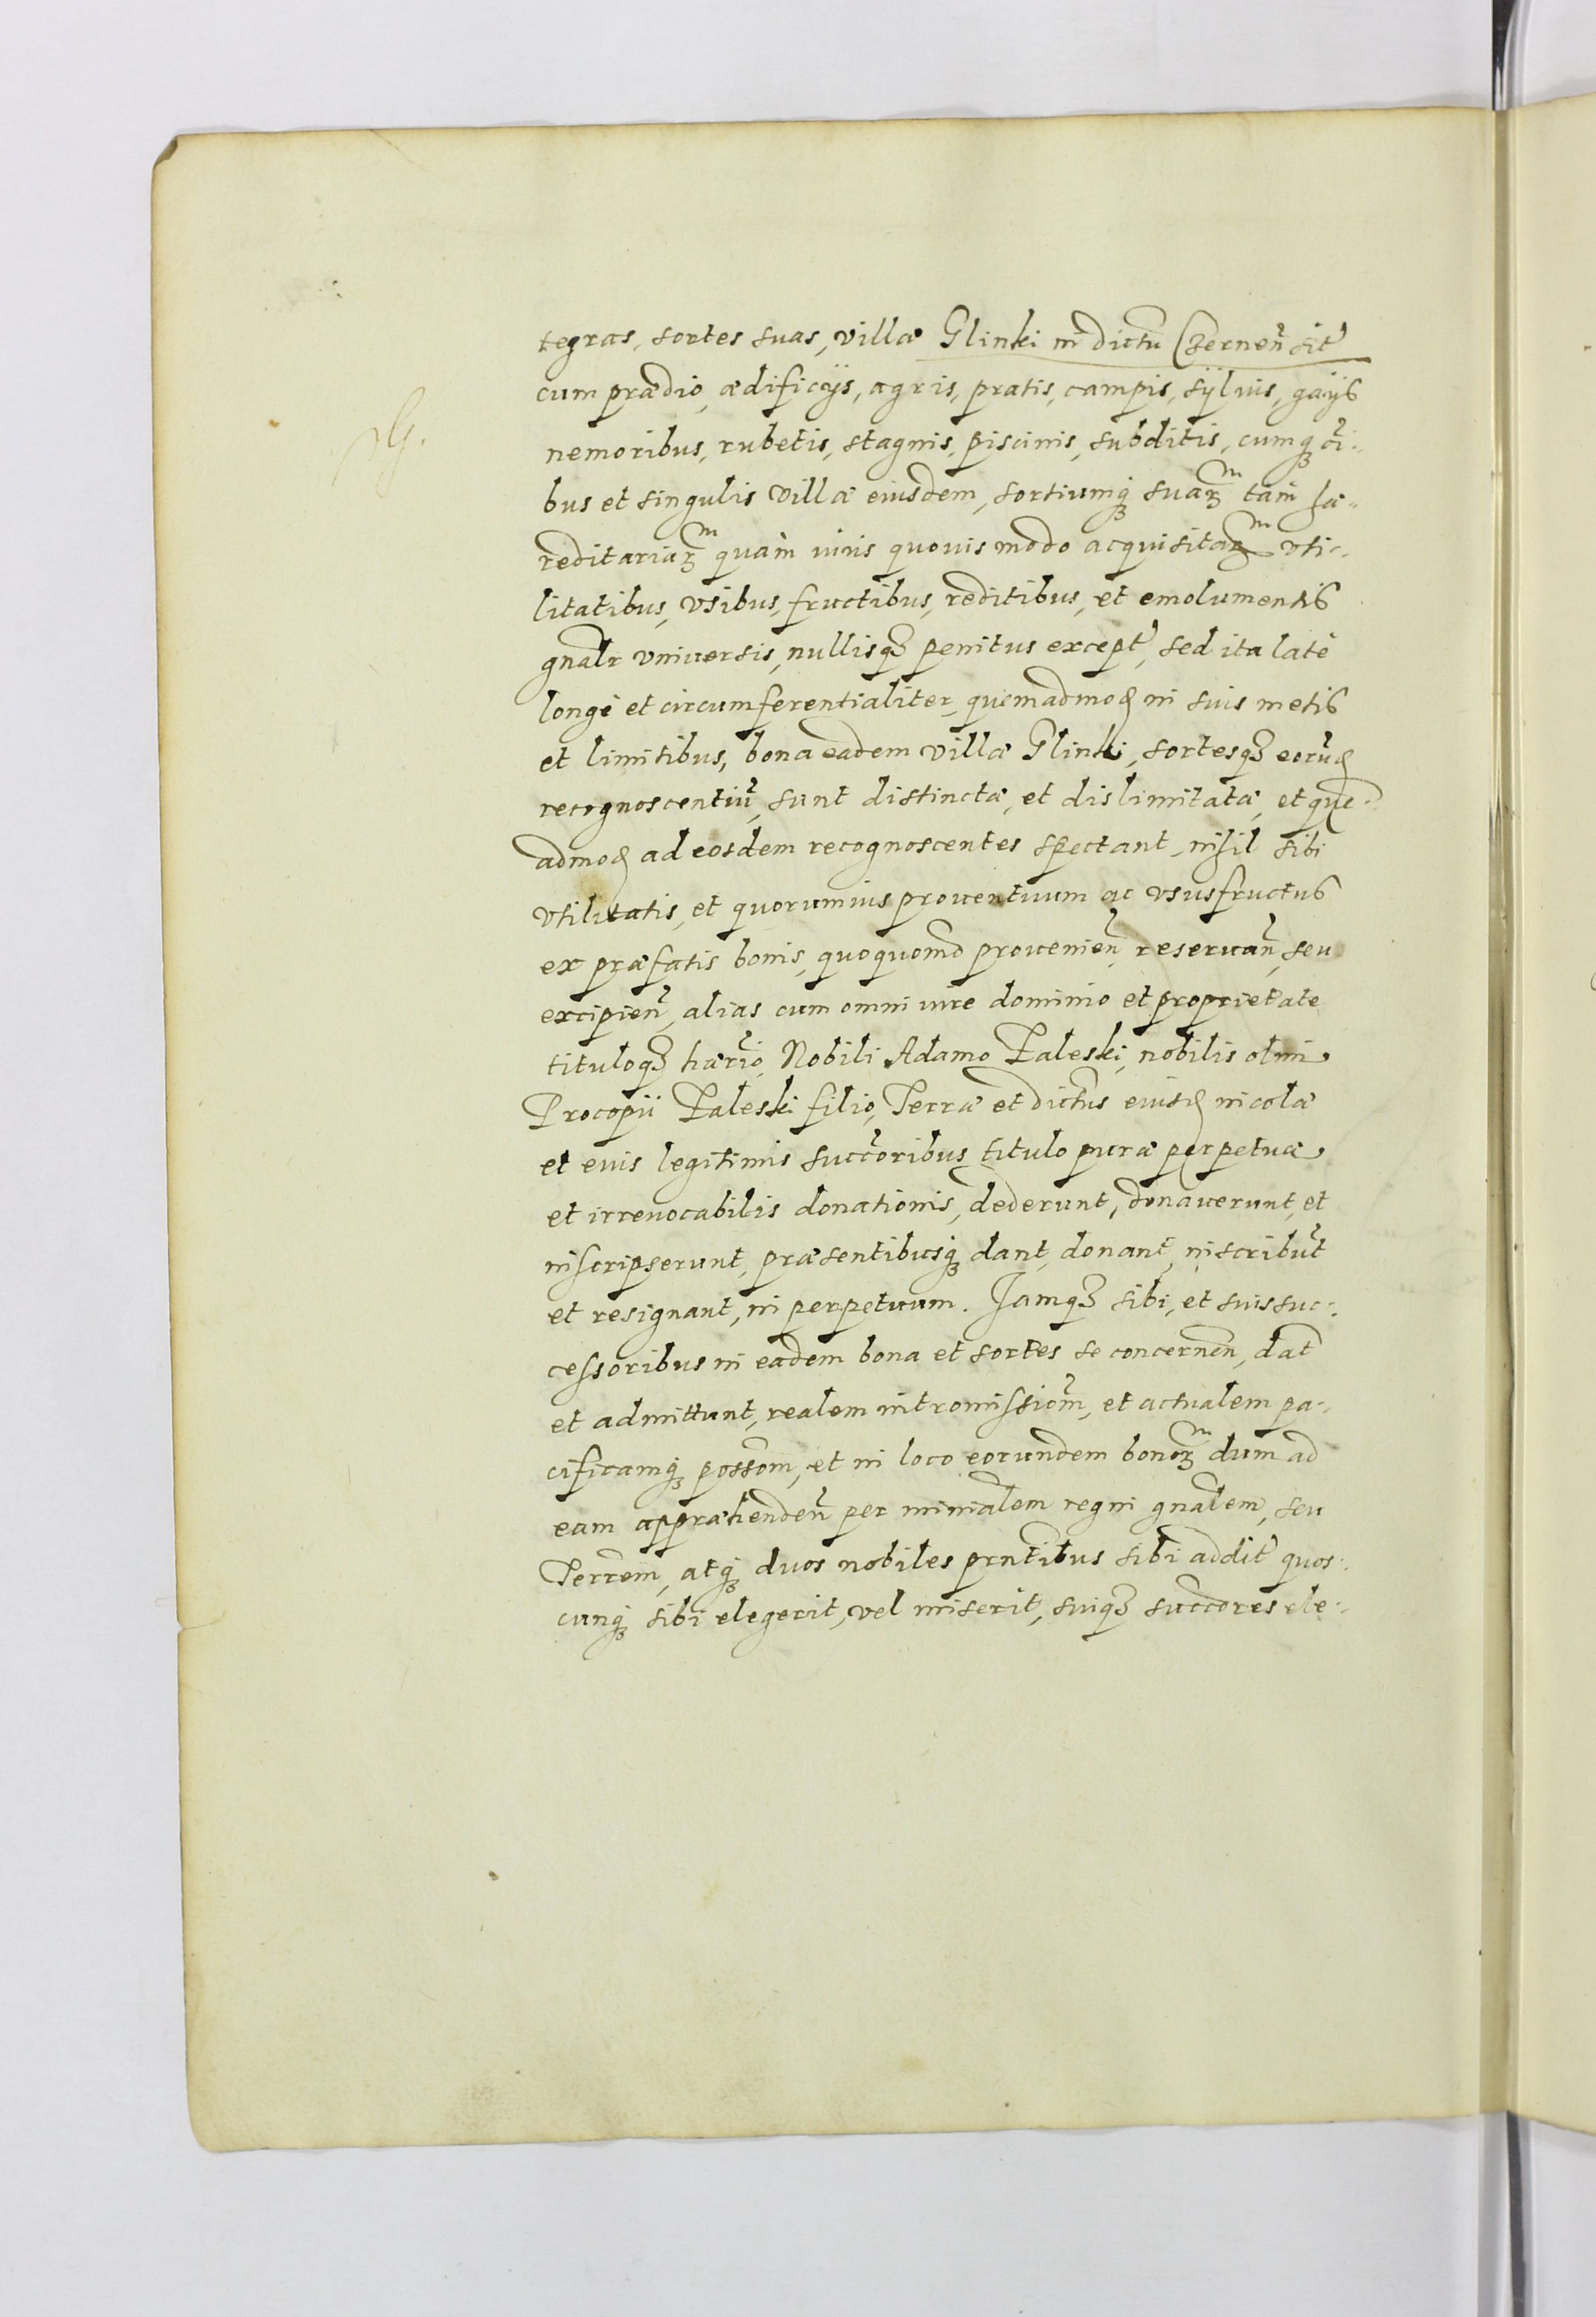 tegras, sortes suas, villæ Glinki in dictu Czernen̄ sit̃
cum prædio, ædificijs, agris, pratis, campis, sÿluis, gaÿs
nemoribus, rubetis, stagnis, piscinis, subditis, cumq̃ oĩ-
bus et singulis villæ eiusdem, sortiumq̃ suaꝝm tam hæ-
reditariaꝝm quàm iuris quouis modo acquisitaꝝm vti-
litatibus, vsibus, fructibus, reditibus, et emolumentis
gnalr vniuersis, nullisqꝫ penitus except̃, sed ita latè
longè et circumferentialiter, quemadmod in suis metis
et limitibus, bona eadem villæ Glinki, sortesqꝫ eorūd
recognoscentiū, sunt distinctæ, et dislimitatæ, et que-
admod ad eosdem recognoscentes spectant, nihil sibi
vtilitatis, et quorumuis prouentuum ac vsusfructus
ex præfatis bonis, quoquomo prouenien̄, reseruan̄, seu
excipien̄, alias cum omni iure dominio et proprietate
tituloqꝫ hærio, Nobili Adamo Zaleski, nobilis olim
Procopii Zaleski filio, Terræ et dictus eiusd incolæ
et euis legitimis succoribus titulo puræ perpetuæ
et irreuocabilis donationis, dederunt, donauerunt, et
inscripserunt, præsentibusq̃ dant, donant, inscribūt
et resignant, in perpetuum. Jamqꝫ sibi, et suis suc-
cessoribus in eadem bona et sortes se concernen̄, dat̄
et admittunt, realem intromissiom̄, et actualem pa-
cificamq̃ possom̄, et in loco eorundem bonoꝝm dum ad
eam appræhenden̄ per minialem regni gnalem, seu
Terrem̄, atq̃ duos nobiles prntibus sibi addit̃ quos-
cunq̃ sibi elegerit, vel miserit, suiqꝫ succores ele-